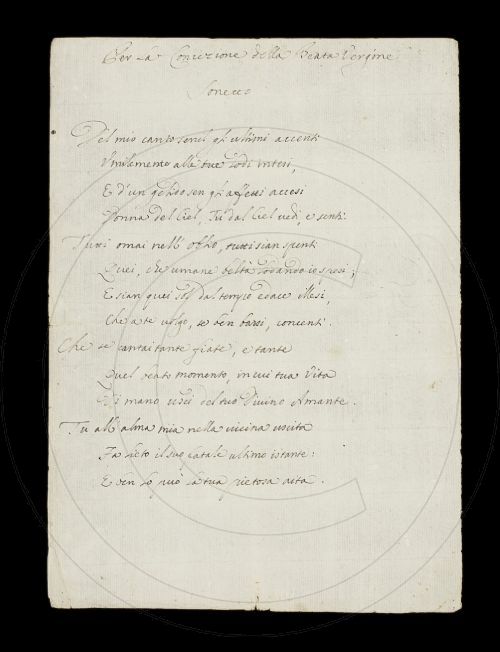 Per La Concezione della Beata Vergine
Sonetto
Del mio canto senil gli ultimi accenti
Umilemente alle tue lodi intesi,
E d'un gelido sen gli affetti accesi
Donna del Ciel, Tu dal Ciel vedi, e senti.
Tutti omai nell' obblio, tutti sian spenti
Quei, che umane beltà lodando io spesi;
E sian quei sol dal tempo edace illesi,
Che a te volgo, se ben bassi, concenti.
Che se cantai tante fiate, e tante
Quel beato momento, in cui tua Vita
Di mano uscì del tuo Divino Amante.
Tu all' alma mia nella vicina uscita
Fa lieto il suo fatale ultimo istante:
E ben lo può la tua pietosa aita.